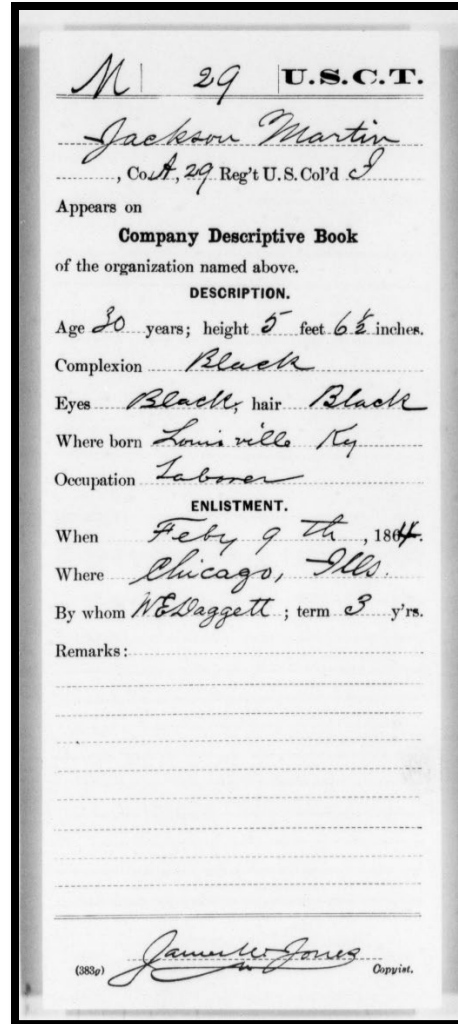 M | 29 | U.S.C.T.
Jackson Martin
, Co. A, 29 Reg't U.S. Col'd I
Appears on
Company Descriptive Book
of the organization named above.
DESCRIPTION.
Age 30 years; height 5 feet 6 1/2 inches.
Complexion Black
Eyes Black, hair Black
Where born Louisville Ky
Occupation Laborer
ENLISTMENT.
When Feby 9th, 1864.
Where Chicago, Ills.
By whom W E Daggett; term 3 y'rs.
Remarks:
(383g) James W Jones Copyist.